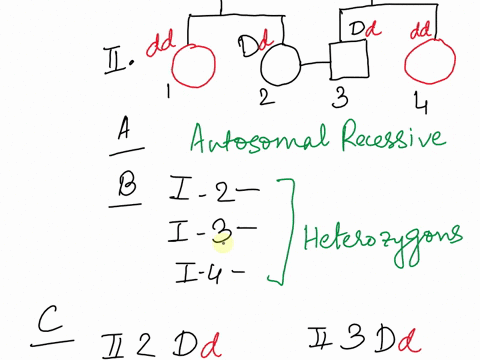 dd Dd Dd dd
II.
1 2 3 4
A Autosomal Recessive
B I - 2 -
I - 3 - Heterozygons
I - 4 -
C II 2 Dd II 3 Dd